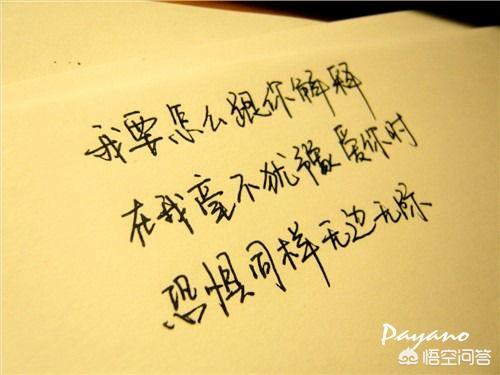 我要怎么跟你解释
在我毫不犹豫爱你时
恐惧同样无边无际
Payano
悟空问答